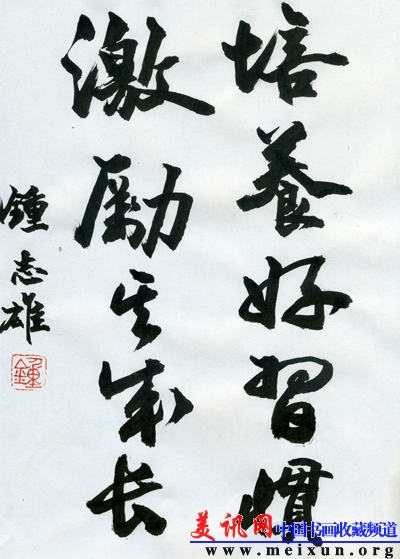 培養好習慣
激勵其成长
鍾志雄
美讯网 中国书画收藏频道
www.meixun.org